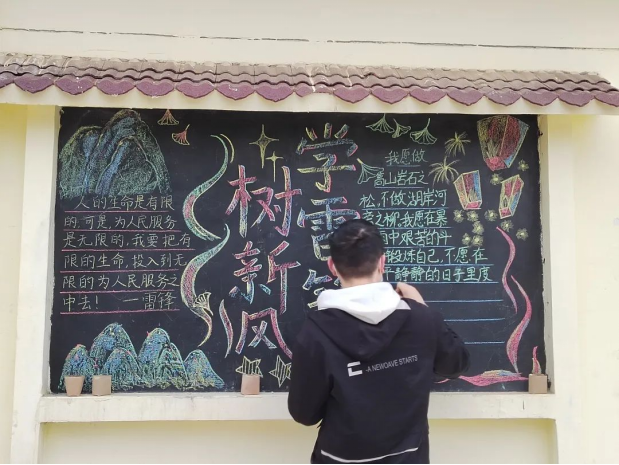 人的生命是有限
的,可是,为人民服务
是无限的,我要把有
限的生命,投入到无
限的为人民服务之
中去! 一雷锋
学雷
树新风
我愿做
高山岩石之
松,不做湖岸河
之柳,我愿在暴
雨中艰苦的斗
锻炼自己,不愿在
平静静的日子里度
-A NEWOAVE STARTS